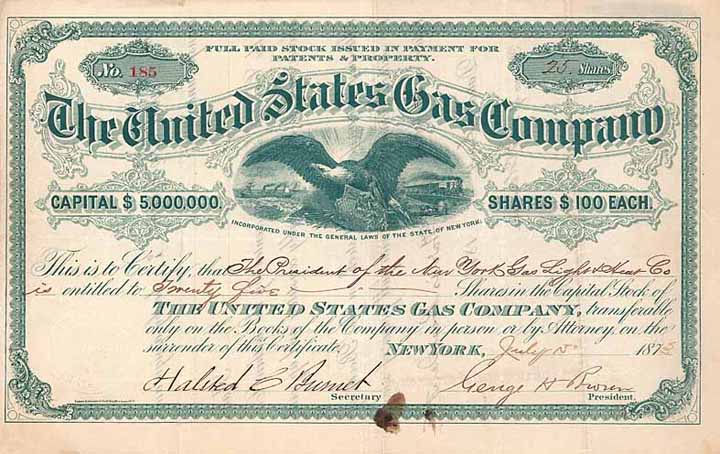 FULL PAID STOCK ISSUED IN PAYMENT FOR
PATENTS & PROPERTY.
No. 185
25. Shares
The United States Gas Company
CAPITAL $ 5,000,000.
SHARES $ 100 EACH.
INCORPORATED UNDER THE GENERAL LAWS OF THE STATE OF NEW YORK.
This is to Certify, that The President of the New York Gas Light & Heat Co
is entitled to Twenty five Shares in the Capital Stock of
THE UNITED STATES GAS COMPANY, transferable
only on the Books of the Company in person or by Attorney, on the
surrender of this Certificate. NEW YORK, July 1875
Secretary
George H
President.